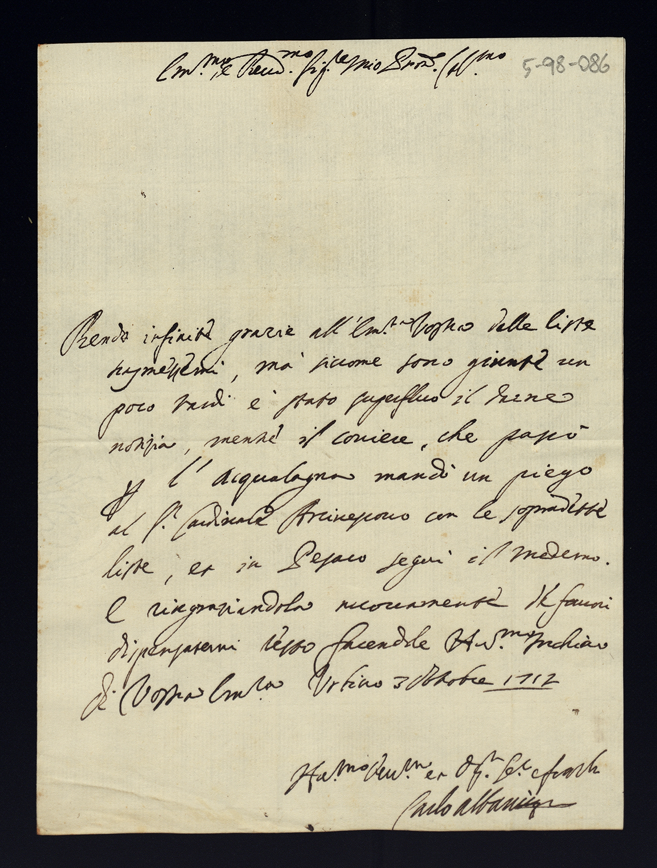 Em.mo, e Reu.mo Sig.re mio Pron. Col.mo
5-98-086
Rendo infinite grazie all'Em.za Vostra delle liste
trasmessemi, mà siccome sono giunte un
poco tardi è stato superfluo il darne
notizia, mentre il coriere, che passò
p l'Acqualagna mandò un piego
al S.r Cardinale Arcivescouo con le sopradette
liste, et in Pesaro seguì il medemo.
E ringraziandola nuouamente de fauori
dispensatemi resto facendole Hum.mo Inchino
di Vostra Em.za Urbino 3 Ottobre 1712
Hu.mo Deu.mo et
Carlo Albani